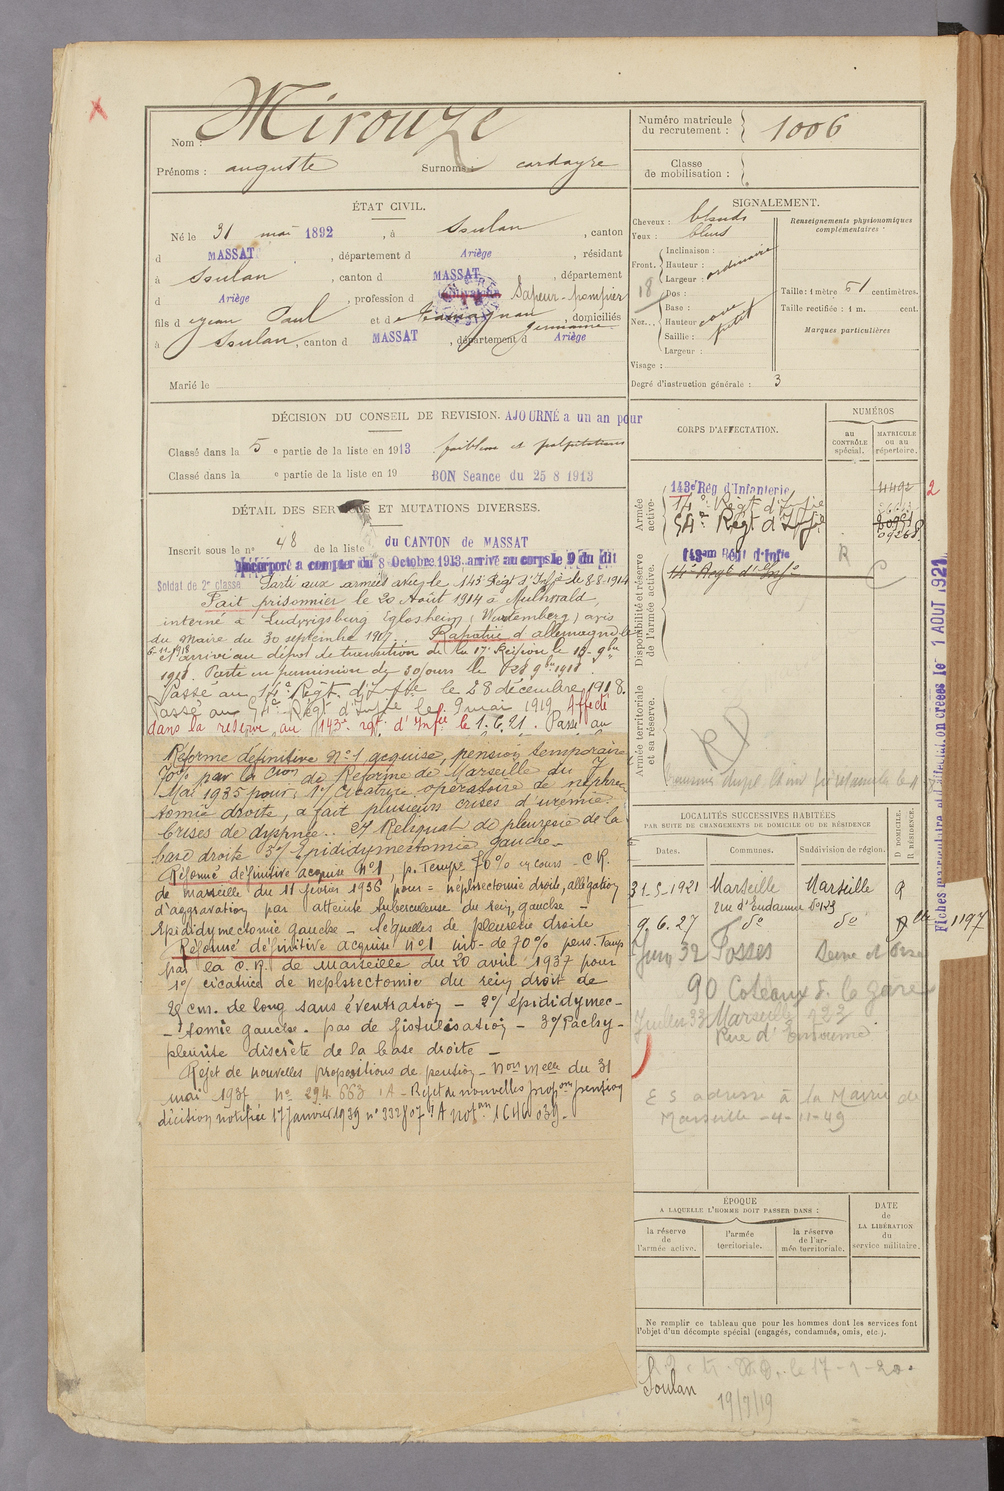 Mirouze
Nom :
Prénoms : auguste Surnoms : cardayre
Numéro matricule du recrutement : 1006
Classe de mobilisation :
ÉTAT CIVIL.
Né le 31 mai 1892, à Soulan, canton
d MASSAT, département d Ariège, résidant
à Soulan, canton d MASSAT, département
d Ariège, profession d Sapeur-pompier
fils d Jean Paul et d , domiciliés
Germaine
à Soulan, canton d MASSAT, département d Ariège
Marié le
SIGNALEMENT.
Cheveux : blonds
Yeux : bleus
Front. Inclinaison :
Hauteur : ordinaire
Largeur :
18
Nez. Dos :
Base : cave
Hauteur petit
Saillie :
Largeur :
Visage :
Degré d'instruction générale : 3
Renseignements physionomiques complémentaires
Taille : 1 mètre 51 centimètres.
Taille rectifiée : 1 m. cent.
Marques particulières
DÉCISION DU CONSEIL DE REVISION. AJOURNÉ a un an pour
Classé dans la 5 e partie de la liste en 1913 faiblesse et palpitations
Classé dans la e partie de la liste en 19 BON Seance du 25 8 1913
DÉTAIL DES SERVICES ET MUTATIONS DIVERSES.
Inscrit sous le n° 48 de la liste du CANTON de MASSAT
Incorporé a compter du 8 Octobre 1913 arrivé au corps le 9 du dit
Soldat de 2e classe Parti aux armées avec le 143e Régt d'Infie le 8.8.1914
Fait prisonnier le 20 Août 1914 à Mulhwald,
interné à Ludwigsburg Eglosheim (Wurtemberg) avis
du Maire du 30 septembre 1917. Rapatrié d'allemagne le
6-11-1918 et arrivé au dépôt de transition de la 17e Région le 15 9bre
1918. Parti en permission de 30 jours le 28 9bre 1918
Passé au 14e Régt. d'Infie le 28 décembre 1918.
Passé au 94e Régt d'Infie le 9 mai 1919 Affecté
dans la réserve au 143e rgt d'Infie le 1.6.21. Passé au
Réforme définitive N°1 acquise, pension temporaire
70% par la Cion de Réforme de Marseille du 7
Mai 1935 pour : 1°/ Cicatrice opératoire de néphrec
tomie droite, a fait plusieurs crises d'urémie.
Crises de dyspnée. 2°/ Reliquat de pleurésie de la
base droite 3°/ Epididymectomie gauche.
Réformé définitive acquise N°1, p. Tempe 70% en cours - C.R.
de Marseille du 11 février 1936 pour = néphrectomie droite, allégation
d'aggravation par atteinte tuberculeuse du rein, gauche -
Epididymectomie gauche - Séquelles de pleurésie droite
Réformé définitive acquise N°1 inv- de 70% pens. Temp
par la C.R. de Marseille du 20 avril 1937 pour
1°/ cicatrice de néphrectomie du rein droit de
28 cms. de long sans éventration - 2°/ épididymec-
tomie gauche. pas de fistulisation - 3°/ Pachy-
pleurite discrète de la base droite -
Rejet de nouvelles propositions de pension - Dons Melle du 31
mai 1937 N° 294.663 1A - Rejet de nouvelles propons pension
décision notifiée 17 Janvier 1939 n° 332807 1A
CORPS D'AFFECTATION.
NUMÉROS
au CONTRÔLE spécial.
MATRICULE ou au répertoire.
Armée active.
143e Rég d'Infanterie 4492 2
14e Régt d'Infie
94e Régt d'Infie
Disponibilité et réserve de l'armée active.
143em Régt d'Infie R
14e Régt d'Infie
Armée territoriale et sa réserve.
LOCALITÉS SUCCESSIVES HABITÉES
PAR SUITE DE CHANGEMENTS DE DOMICILE OU DE RÉSIDENCE
Dates. Communes. Subdivision de région. D DOMICILE. R RÉSIDENCE.
31-5-1921 Marseille Marseille R
rue d'Endoume 123
9.6.27 do do 1197
Juin 32 Fosses Seine et Oise
90 Coteaux d. la gare
Juillet 33 Marseille 223
Rue d'Endoume
E S adresse à la Mairie de
Marseille -4-11-49
ÉPOQUE
A LAQUELLE L'HOMME DOIT PASSER DANS :
la réserve de l'armée active.
l'armée territoriale.
la réserve de l'armée territoriale.
DATE de LA LIBÉRATION du service militaire.
Ne remplir ce tableau que pour les hommes dont les services font
l'objet d'un décompte spécial (engagés, condamnés, omis, etc.).
le 17-1-20
Soulan
19/9/19
Fiches matriculaire et d'affectation créées le 1 AOUT 1921